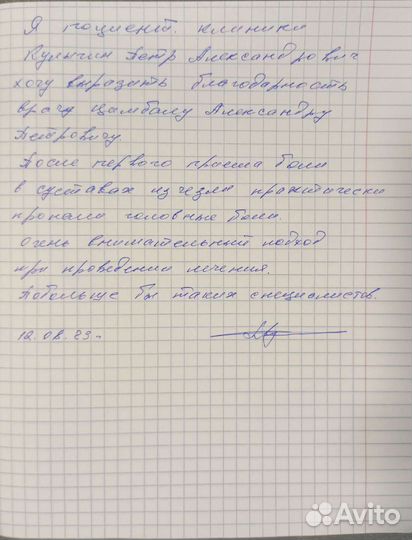 Я пациент клиники
Кулыгин Петр Александрович
хочу выразить благодарность
врачу Цамбалу Александру
Петровичу.
После первого приема боли
в суставах изчезли практически
пропали головные боли.
Очень внимательный подход
при проведении лечения.
Побольше бы таких специалистов.
12.08.23
Avito